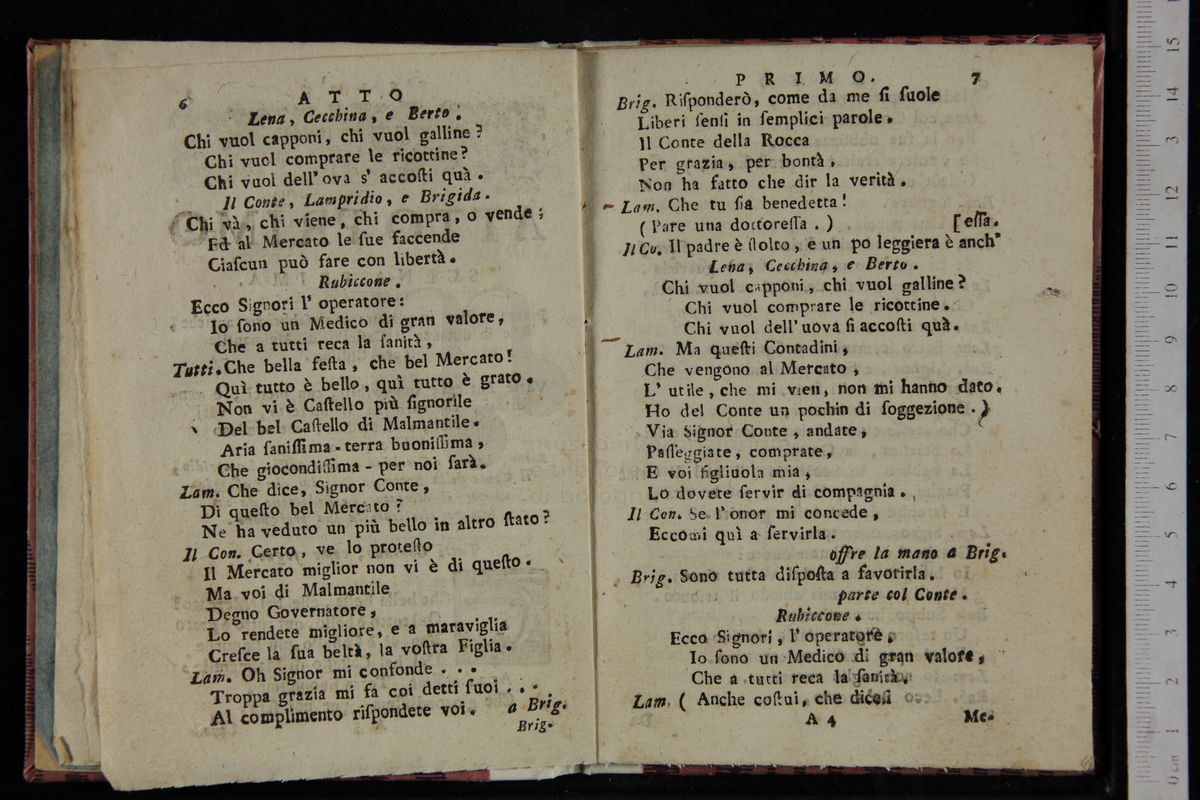 6 ATTO
Lena, Cecchina, e Berto.
Chi vuol capponi, chi vuol galline?
Chi vuol comprare le ricottine?
Chi vuol dell'ova s' accoſti quà.
Il Conte, Lampridio, e Brigida.
Chi và, chi viene, chi compra, o vende;
Ed al Mercato le ſue faccende
Ciaſcun può fare con libertà.
Rubiccone.
Ecco Signori l' operatore:
Io ſono un Medico di gran valore,
Che a tutti reca la ſanità,
Tutti. Che bella feſta, che bel Mercato!
Quì tutto è bello, quì tutto è grato.
Non vi è Caſtello più ſignorile
Del bel Caſtello di Malmantile.
Aria ſaniſſima - terra buoniſſima,
Che giocondiſſima - per noi ſarà.
Lam. Che dice, Signor Conte,
Di queſto bel Mercato?
Ne ha veduto un più bello in altro ſtato?
Il Con. Certo, ve lo proteſto
Il Mercato miglior non vi è di queſto.
Ma voi di Malmantile
Degno Governatore,
Lo rendete migliore, e a maraviglia
Creſce la ſua beltà, la voſtra Figlia.
Lam. Oh Signor mi confonde . . .
Troppa grazia mi fa coi detti ſuoi . . .
Al complimento riſpondete voi. a Brig.
Brig.
PRIMO. 7
Brig. Riſponderò, come da me ſi ſuole
Liberi ſenſi in ſemplici parole.
Il Conte della Rocca
Per grazia, per bontà,
Non ha fatto che dir la verità.
Lam. Che tu ſia benedetta!
(Pare una dottoreſſa.) [eſſa.
Il Co. Il padre è ſtolto, e un po leggiera è anch'
Lena, Cecchina, e Berto.
Chi vuol capponi, chi vuol galline?
Chi vuol comprare le ricottine.
Chi vuol dell'uova ſi accoſti quà.
Lam. Ma queſti Contadini,
Che vengono al Mercato,
L' utile, che mi vien, non mi hanno dato.
Ho del Conte un pochin di ſoggezione.)
Via Signor Conte, andate,
Paſſeggiate, comprate,
E voi figliuola mia,
Lo dovete ſervir di compagnia.
Il Con. Se l'onor mi concede,
Eccomi quì a ſervirla.
offre la mano a Brig.
Brig. Sono tutta diſpoſta a favorirla.
parte col Conte.
Rubiccone.
Ecco Signori, l'operatore,
Io ſono un Medico di gran valore,
Che a tutti reca la ſanità.
Lam. (Anche coſtui, che diceſi
A 4 Me-